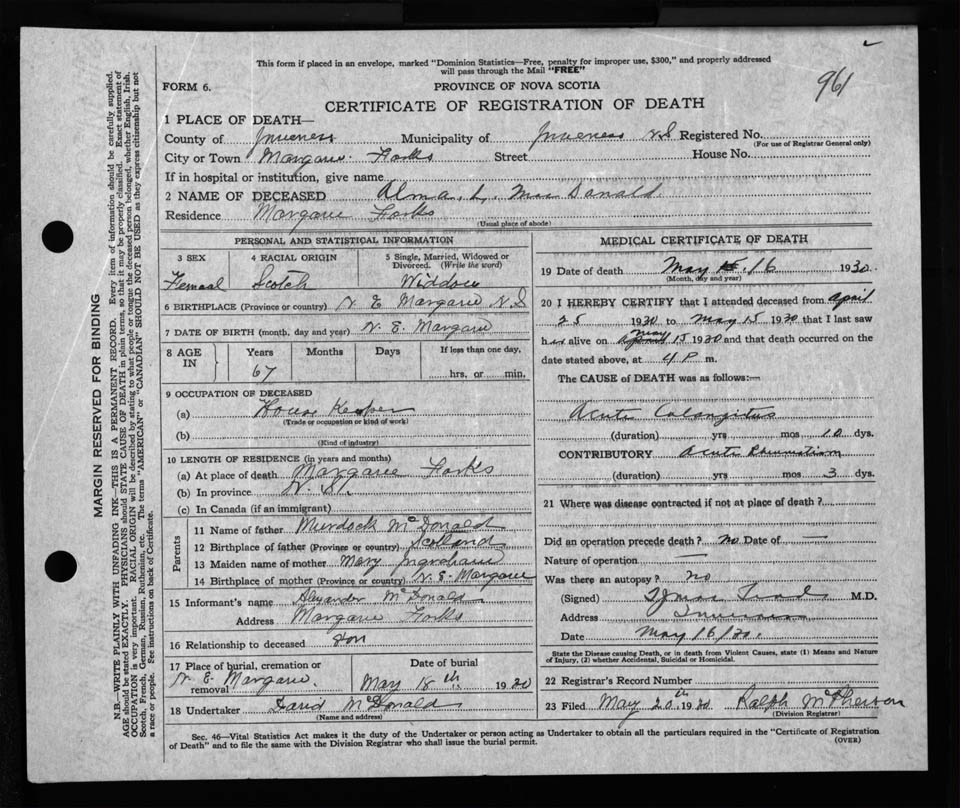 This form if placed in an envelope, marked "Dominion Statistics—Free, penalty for improper use, $300," and properly addressed
will pass through the Mail "FREE"
961
FORM 6.
PROVINCE OF NOVA SCOTIA
CERTIFICATE OF REGISTRATION OF DEATH
1 PLACE OF DEATH—
County of Inverness Municipality of Inverness N.S Registered No.
(For use of Registrar General only)
City or Town Margaree Forks Street House No.
If in hospital or institution, give name
2 NAME OF DECEASED Alma. L. MacDonald
Residence Margaree Forks
(Usual place of abode)
PERSONAL AND STATISTICAL INFORMATION
3 SEX 4 RACIAL ORIGIN 5 Single, Married, Widowed or
Divorced. (Write the word)
Femaal Scotch Widdow
6 BIRTHPLACE (Province or country) N. E Margaree N.S
7 DATE OF BIRTH (month, day and year) N. E. Margaree
8 AGE IN Years Months Days If less than one day,
67 hrs. or min.
9 OCCUPATION OF DECEASED
(a) House Keeper
(Trade or occupation or kind of work)
(b)
(Kind of industry)
10 LENGTH OF RESIDENCE (in years and months)
(a) At place of death Margaree Forks
(b) In province N. S.
(c) In Canada (if an immigrant)
Parents
11 Name of father Murdock McDonald
12 Birthplace of father (Province or country) Scotland
13 Maiden name of mother Mary Ingraham
14 Birthplace of mother (Province or country) N. E. Margaree
15 Informant's name Alexander McDonald
Address Margaree Forks
16 Relationship to deceased Son
17 Place of burial, cremation or Date of burial
removal N. E. Margaree. May 18th 1930
18 Undertaker David McDonald
(Name and address)
MEDICAL CERTIFICATE OF DEATH
19 Date of death May 16 1930.
(Month, day and year)
20 I HEREBY CERTIFY that I attended deceased from April
25 1930 to May 15 1930 that I last saw
her alive on May 15 1930 and that death occurred on the
date stated above, at 4 P m.
The CAUSE of DEATH was as follows:—
Acute Colangitus
(duration) yrs mos 10 dys.
CONTRIBUTORY Acute Rheumatism
(duration) yrs mos 3 dys.
21 Where was disease contracted if not at place of death?
Did an operation precede death? no Date of —
Nature of operation —
Was there an autopsy? no
(Signed) M.D.
Address Inverness
Date May 16/30.
State the Disease causing Death, or in death from Violent Causes, state (1) Means and Nature
of Injury, (2) whether Accidental, Suicidal or Homicidal.
22 Registrar's Record Number
23 Filed May 20th 1930 Ralph McPherson
(Division Registrar)
Sec. 46—Vital Statistics Act makes it the duty of the Undertaker or person acting as Undertaker to obtain all the particulars required in the "Certificate of Registration
of Death" and to file the same with the Division Registrar who shall issue the burial permit.
(OVER)
MARGIN RESERVED FOR BINDING
N.B.—WRITE PLAINLY WITH UNFADING INK—THIS IS A PERMANENT RECORD. Every item of information should be carefully supplied.
AGE should be stated EXACTLY. PHYSICIANS should STATE CAUSE OF DEATH in plain terms, so that it may be properly classified. Exact statement of
OCCUPATION is very important. RACIAL ORIGIN will be described by stating to what people or tongue the deceased person belonged, whether English, Irish,
Scotch, French, German, Russian, Ruthenian, etc. The terms "AMERICAN" or "CANADIAN" SHOULD NOT BE USED as they express citizenship but not
a race or people. See instructions on back of Certificate.